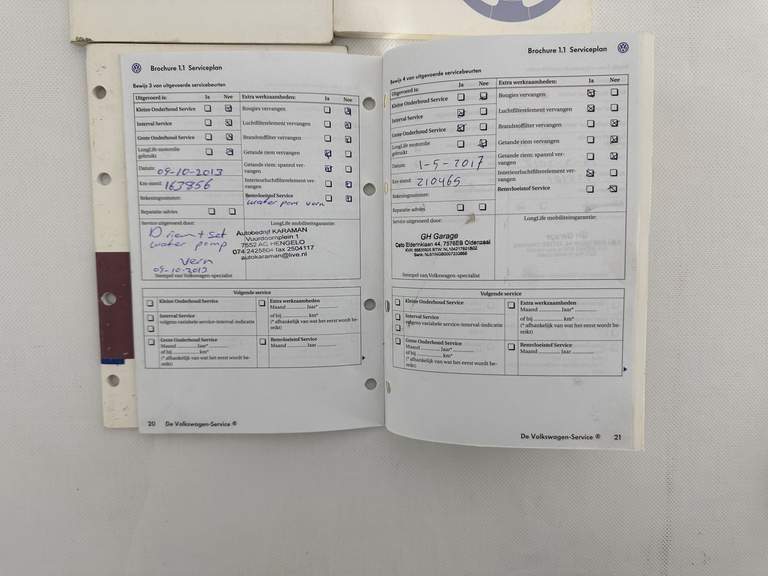 Brochure 1.1 Serviceplan
Bewijs 3 van uitgevoerde servicebeurten
Uitgevoerd is: Ja Nee
Kleine Onderhoud Service
Interval Service
Grote Onderhoud Service
LongLife motorolie
gebruikt
Datum: 09-10-2013
Km-stand: 163856
Rekeningnummer:
Reparatie-advies
Extra werkzaamheden: Ja Nee
Bougies vervangen
Luchtfilterelement vervangen
Brandstoffilter vervangen
Getande riem vervangen
Getande riem; spanrol ver-
vangen
Interieurluchtfilterelement ver-
vangen
Remvloeistof Service
water pom vern
Service uitgevoerd door:
D riem + set
water pomp
vern
09-10-2013
Autobedrijf KARAMAN
Vuurdoornplein 1
7552 AC HENGELO
074 2425804 fax 2504117
autokaraman@live.nl
Stempel van Volkswagen-specialist
LongLife mobiliteitsgarantie:
Volgende service
Kleine Onderhoud Service
Interval Service
volgens variabele service-interval-indicatie
Grote Onderhoud Service
Maand ........... Jaar* ...........
of bij ........... km*
(* afhankelijk van wat het eerst wordt be-
reikt)
Extra werkzaamheden
Maand ........... Jaar* ...........
of bij ........... km*
(* afhankelijk van wat het eerst wordt be-
reikt)
Remvloeistof Service
Maand ........... Jaar ...........
20 De Volkswagen-Service ®
Brochure 1.1 Serviceplan
Bewijs 4 van uitgevoerde servicebeurten
Uitgevoerd is: Ja Nee
Kleine Onderhoud Service
Interval Service
Grote Onderhoud Service
LongLife motorolie
gebruikt
Datum: 1-5-2017
Km-stand: 210465
Rekeningnummer:
Reparatie-advies
Extra werkzaamheden: Ja Nee
Bougies vervangen
Luchtfilterelement vervangen
Brandstoffilter vervangen
Getande riem vervangen
Getande riem; spanrol ver-
vangen
Interieurluchtfilterelement ver-
vangen
Remvloeistof Service
Service uitgevoerd door:
GH Garage
44, 7576EB Oldenzaal
Stempel van Volkswagen-specialist
LongLife mobiliteitsgarantie:
Volgende service
Kleine Onderhoud Service
Interval Service
volgens variabele service-interval-indicatie
Grote Onderhoud Service
Maand ........... Jaar* ...........
of bij ........... km*
(* afhankelijk van wat het eerst wordt be-
reikt)
Extra werkzaamheden
Maand ........... Jaar* ...........
of bij ........... km*
(* afhankelijk van wat het eerst wordt be-
reikt)
Remvloeistof Service
Maand ........... Jaar ...........
De Volkswagen-Service ® 21